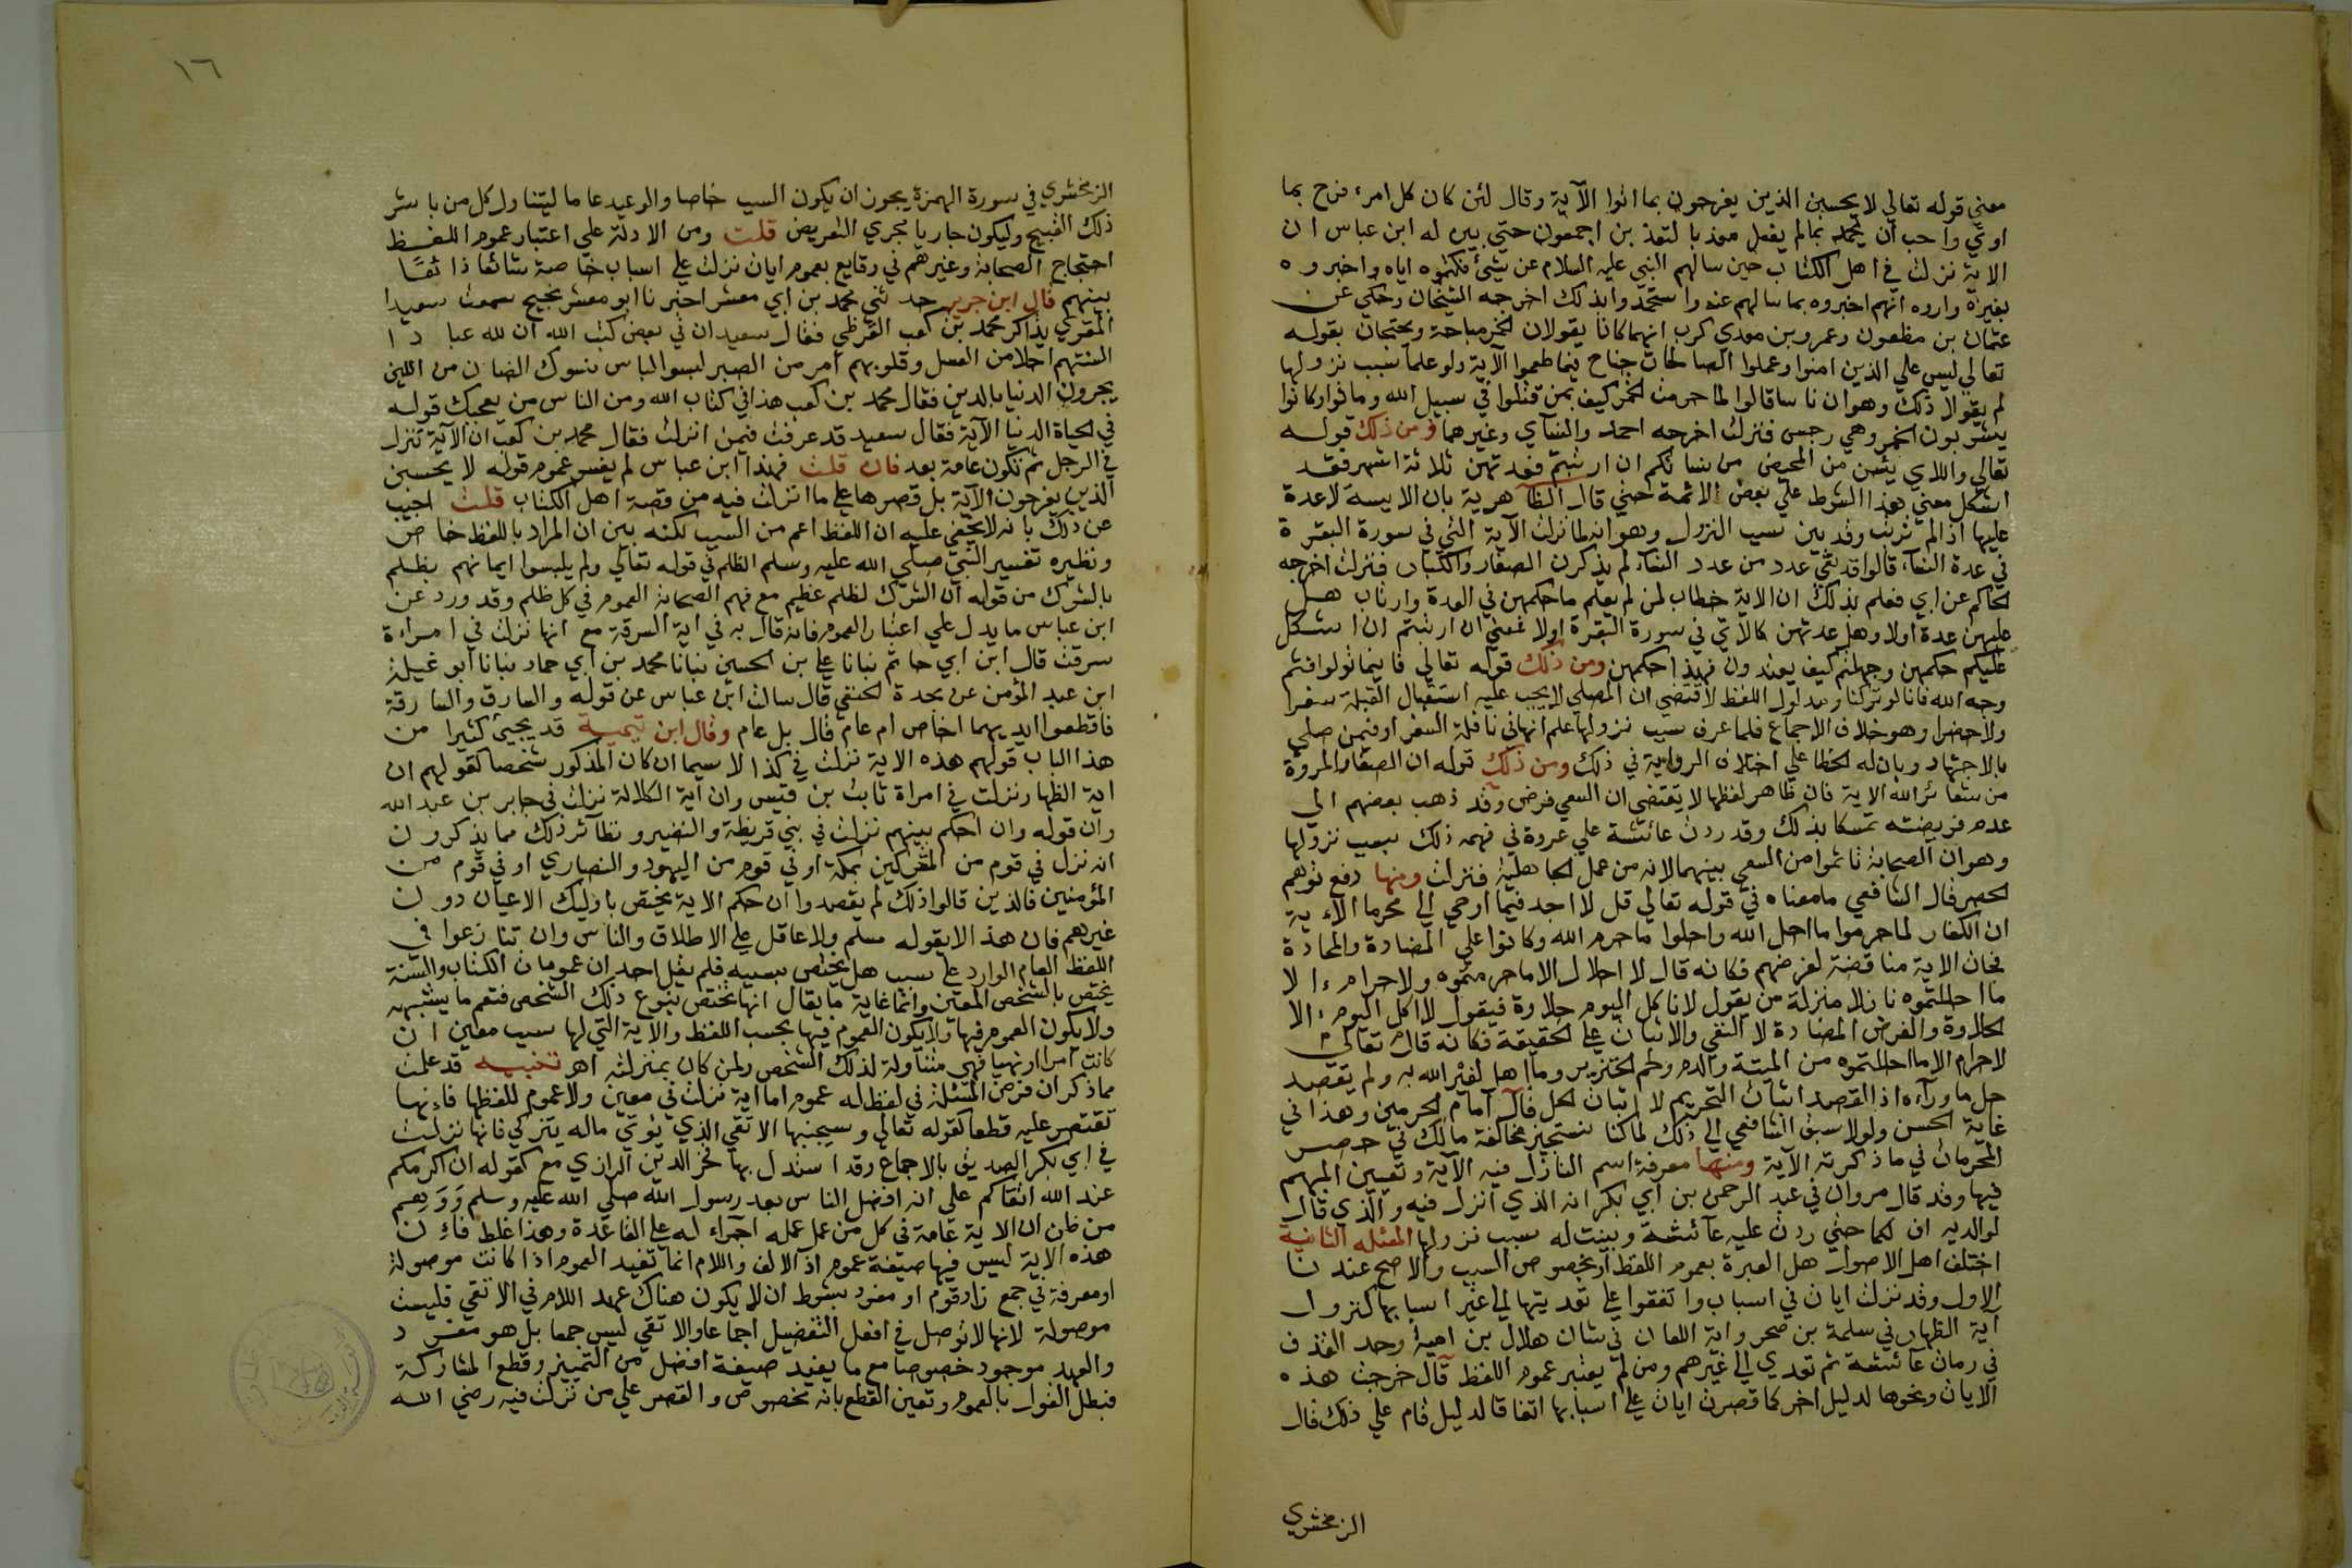 معني قوله تعالي لا يحسبن الذين يفرحون بما اتوا الآية وقال لئن كان كل امرء فرح بما
اوتي واحب ان يحمد بما لم يفعل معذبا لنعذبن اجمعون حتي بين له ابن عباس ان
الاية نزلت في اهل الكتاب حين سالهم النبي عليه السلام عن شيئ فكتموه اياه واخبروه
بغيره واروه انهم اخبروه بما سالهم عنه واستحمدوا بذلك اخرجه الشيخان وحكي عن
عثمان بن مظعون وعمرو بن معدي كرب انهما كانا يقولان الخمر مباحة ويحتجان بقوله
تعالي ليس علي الذين امنوا وعملوا الصالحات جناح فيما طعموا الآية ولو علما سبب نزولها
لم يقولا ذلك وهو ان ناسا قالوا لما حرمت الخمر كيف بمن قتلوا في سبيل الله وماتوا وكانوا
يشربون الخمر وهي رجس فنزلت اخرجه احمد والنسآي وغيرهما ومن ذلك قوله
تعالي واللاي يئسن من المحيض من نسائكم ان ارتبتم فعدتهن ثلاثة اشهر فقد
اشكل معني هذا الشرط علي بعض الائمة حتي قال الظاهرية بان الايسة لا عدة
عليها اذا لم ترتب وقد بين سبب النزول وهو انه لما نزلت الآية التي في سورة البقرة
في عدة النسآء قالوا قد بقي عدد من عدد النسآء لم يذكرن الصغار والكبار فنزلت اخرجه
الحاكم عن ابي فعلم بذلك ان الاية خطاب لمن لم يعلم ما حكمهن في العدة وارتاب هل
عليهن عدة اولا وهل عدتهن كالآتي في سورة البقرة اولا فمعني ان ارتبتم ان اشكل
عليكم حكمهن وجهلتم كيف يعتدون فهذا حكمهن ومن ذلك قوله تعالي فاينما تولوا فثم
وجه الله فانا لو تركنا ومدلول اللفظ لاقتضي ان المصلي لا يجب عليه استقبال القبلة سفرا
ولا حضرا وهو خلاف الاجماع فلما عرف سبب نزولها علم انها في نافلة السفر او فيمن صلي
بالاجتهاد وبان له الخطا علي اختلاف الرواية في ذلك ومن ذلك قوله ان الصفا والمروة
من شعائر الله الاية فان ظاهر لفظها لا يقتضي ان السعي فرض وقد ذهب بعضهم الي
عدم فريضته تمسكا بذلك وقد ردت عائشة علي عروة في فهمه ذلك بسبب نزولها
وهو ان الصحابة تاثموا من السعي بينهما لانه من عمل الجاهلية فنزلت ومنها دفع توهم
الحصر قال الشافعي ما معناه في قوله تعالي قل لا اجد فيما اوحي الي محرما الاية
ان الكفار لما حرموا ما احل الله واحلوا ما حرم الله وكانوا علي المضادة والمحادة
فجات الاية مناقضة لغرضهم فكانه قال لا احلال الا ما حرمتموه ولا حرام الا
ما احللتموه نازلا منزلة من يقول لا تاكل اليوم حلاوة فيقول لا اكل اليوم الا
الحلاوة والغرض المضادة لا النفي والاثبات علي الحقيقة فكانه قال تعالي
لا حرام الا ما احللتموه من الميتة والدم ولحم الخنزير وما اهل لغير الله به ولم يقصد
حل ما ورآءه اذ القصد اثبات التحريم لا اثبات الحل قال امام الحرمين وهذا في
غاية الحسن ولولا سبق الشافعي الي ذلك لما كنا نستجيز مخالفة مالك في حصر
المحرمات في ما ذكرته الآية ومنها معرفة اسم النازل فيه الآية وتعيين المبهم
فيها وقد قال مروان في عبد الرحمن بن ابي بكر انه الذي انزل فيه والذي قال
لوالديه اف لكما حتي ردت عليه عآئشة وبينت له سبب نزولها المسئلة الثانية
اختلف اهل الاصول هل العبرة بعموم اللفظ او بخصوص السبب والاصح عندنا
الاول وقد نزلت ايات في اسباب واتفقوا علي تعديتها الي غير اسبابها كنزول
آية الظهار في سلمة بن صخر واية اللعان في شان هلال بن امية وحد القذف
في رمات عآئشة ثم تعدي الي غيرهم ومن لم يعتبر عموم اللفظ قال خرجت هذه
الايات ونحوها لدليل اخر كما قصرت ايات علي اسبابها اتفاقا لدليل قام علي ذلك قال
الزمخشري
١٦
الزمخشري في سورة الهمزة يجوز ان يكون السبب خاصا والوعيد عاما ليتناول كل من باشر
ذلك القبيح وليكون جاريا مجري التعريض قلت ومن الادلة علي اعتبار عموم اللفظ
احتجاج الصحابة وغيرهم في وقايع بعموم ايات نزلت علي اسباب خاصة شائعا ذائعا
بينهم قال ابن جرير حدثني محمد بن ابي معشر اخبرنا ابو معشر نجيح سمعت سعيدا
المقبري يذاكر محمد بن كعب القرظي فقال سعيد ان في بعض كتب الله ان لله عبادا
السنتهم احلا من العسل وقلوبهم امر من الصبر لبسوا لباس مسوك الضان من اللين
يجرون الدنيا بالدين فقال محمد بن كعب هذا في كتاب الله ومن الناس من يعجبك قوله
في الحياة الدنيا الآية فقال سعيد قد عرفت فيمن انزلت فقال محمد بن كعب ان الآية تنزل
في الرجل ثم تكون عامة بعد فان قلت فهذا ابن عباس لم يعتبر عموم قوله لا يحسبن
الذين يفرحون الآية بل قصرها علي ما انزلت فيه من قصة اهل الكتاب قلت اجيب
عن ذلك بانه لا يخفي عليه ان اللفظ اعم من السبب لكنه بين ان المراد باللفظ خاص
ونظيره تفسير النبي صلي الله عليه وسلم الظلم في قوله تعالي ولم يلبسوا ايمانهم بظلم
بالشرك من قوله ان الشرك لظلم عظيم مع فهم الصحابة العموم في كل ظلم وقد ورد عن
ابن عباس ما يدل علي اعتبار العموم فانه قال به في اية السرقة مع انها نزلت في امراة
سرقت قال ابن ابي حاتم نبانا علي بن الحسين نبانا محمد بن ابي حماد نبانا ابو ثميلة
ابن عبد المؤمن عن نجدة الحنفي قال سالت ابن عباس عن قوله والسارق والسارقة
فاقطعوا ايديهما اخاص ام عام قال بل عام وقال ابن تيمية قد يجيئ كثيرا من
هذا الباب قولهم هذه الاية نزلت في كذا لا سيما ان كان المذكور شخصا كقولهم ان
اية الظهار نزلت في امراة ثابت بن قيس وان آية الكلالة نزلت في جابر بن عبد الله
وان قوله وان احكم بينهم نزلت في بني قريظة والنضير ونظآئر ذلك مما يذكرون
انه نزل في قوم من المشركين بمكة او في قوم من اليهود والنصاري او في قوم من
المؤمنين فالذين قالوا ذلك لم يقصدوا ان حكم الاية يختص باوليك الاعيان دون
غيرهم فان هذا لا يقوله مسلم ولا عاقل علي الاطلاق والناس وان تنازعوا في
اللفظ العام الوارد علي سبب هل يختص بسببه فلم يقل احد ان عمومات الكتاب والسنة
يختص بالشخص المعين وانما غاية ما يقال انها تختص بنوع ذلك الشخص فتعم ما يشبهه
ولا يكون العموم فيها ولا يكون العموم فيها بحسب اللفظ والآية التي لها سبب معين ان
كانت امرا او نهيا فهي متناولة لذلك الشخص ولمن كان بمنزلته اهـ تنبيه قد علمت
مما ذكر ان فرض المسئلة في لفظ له عموم اما اية نزلت في معين ولا عموم للفظها فانها
تقتصر عليه قطعا كقوله تعالي وسيجنبها الاتقي الذي يؤتي ماله يتزكي فانها نزلت
في ابي بكر الصديق بالاجماع وقد استدل بها فخر الدين الرازي مع كقوله ان اكرمكم
عند الله اتقاكم علي انه افضل الناس بعد رسول الله صلي الله عليه وسلم ووهم
من ظن ان الاية عامة في كل من عمل عمله اجراء له علي القاعدة وهذا غلط فان
هذه الاية ليس فيها صيغة عموم اذ الالف واللام انما تفيد العموم اذا كانت موصولة
او معرفة في جمع زاد قوم او مفرد بشرط ان لا يكون هناك عهد اللام في الاتقي فليست
موصولة لانها لا توصل في افعل التفضيل اجماعا والاتقي ليس جمعا بل هو مفرد
والعهد موجود خصوصا مع ما يفيد صيغة افضل من التمييز وقطع المشاركة
فبطل القول بالعموم وتعين القطع بانه تخصوص والقصر علي من نزلت فيه رضي الله